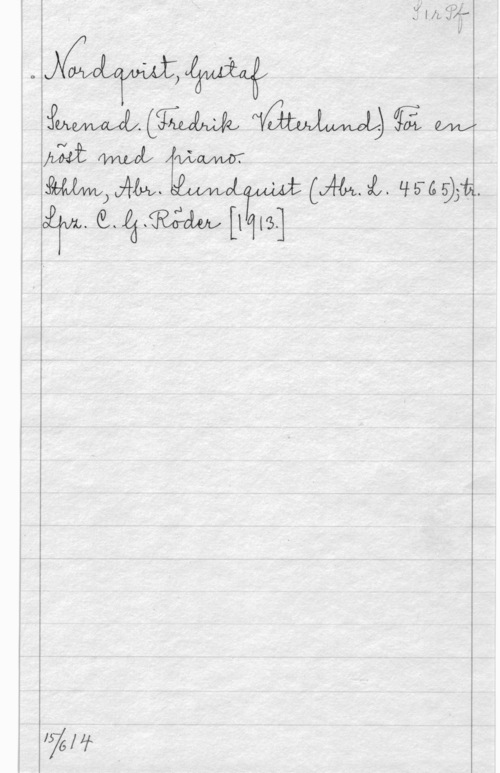 S 1 r Pf
Nordqvist, Gustaf
Serenad. (Fredrik Vetterlund.) För en
röst med piano.
Sthlm, Abr. Lundquist (Abr. L. 4565); tr.
Lpz. C. G. Röder [1913.]
15/6 14